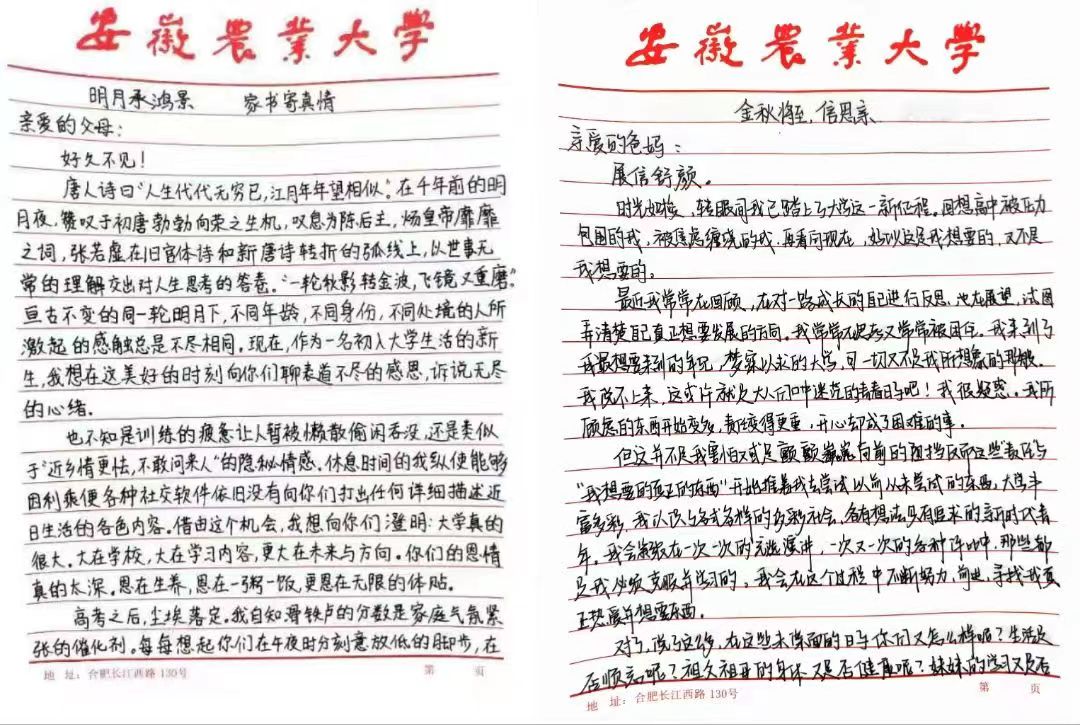 安徽农业大学
明月承鸿景 家书寄真情
亲爱的父母：
好久不见！
唐人诗曰“人生代代无穷已，江月年年望相似”。在千年前的明
月夜，赞叹于初唐勃勃向荣之生机，叹息为陈后主，炀皇帝靡靡
之词，张若虚在旧宫体诗和新唐诗转折的弧线上，以世事无
常的理解交出对人生思考的答卷。“一轮秋影转金波，飞镜又重磨”
亘古不变的同一轮明月下，不同年龄，不同身份，不同处境的人所
激起的感触总是不尽相同。现在，作为一名初入大学生活的新
生，我想在这美好的时刻向你们聊表道不尽的感恩，诉说无尽
的心绪。
也不知是训练的疲惫让人暂被懒散偷闲吞没，还是类似
于“近乡情更怯，不敢问来人”的隐秘情感。休息时间的我纵使能够
因利乘便各种社交软件依旧没有向你们打出任何详细描述近
日生活的各色内容。借由这个机会，我想向你们澄明：大学真的
很大。大在学校，大在学习内容，更大在未来与方向。你们的恩情
真的太深。恩在生养，恩在一粥一饭，更恩在无限的体贴。
高考之后，尘埃落定。我自知滑铁卢的分数是家庭气氛紧
张的催化剂。每每想起你们在午夜时分刻意放低的脚步，在
地址：合肥长江西路130号 第 页
安徽农业大学
金秋将至，信思亲
亲爱的爸妈：
展信舒颜。
时光如梭，转眼间我已踏上了大学这一新征程。回想高中被压力
包围的我，被焦虑缠绕的我，再看向现在，好似这是我想要的，又不是
我想要的。
最近我常常在回顾，在对一路成长的自己进行反思，也在展望，试图
弄清楚自己真正想要发展的方向。我常常思考又常常被困住。我来到了
我最想要来到的年纪，梦寐以求的大学，可一切又不是我所想象的那般。
我说不上来，这或许就是大人们口中迷茫的青春日子吧！我很疑惑。我所
顾虑的东西开始变多，责任变得更重，开心却成了困难的事。
但这并不是我害怕又或是颤颤巍巍向前的阻挡反而这些“责任”与
“我想要的真正的东西”开始推着我去尝试以前从未尝试的东西，大学丰
富多彩，我认识了各式各样的多彩社会，各有想法又有追求的新时代青
年。我会紧张在一次一次的竞选演讲，一次又一次的各种评比中，那些都
是我必须克服并学习的，我会在这个过程中不断努力，前进，寻找我真
正热爱并想要东西。
对了，说了这么多，在这些未碰面的日子你们又怎么样呢？生活是
否顺意呢？祖父祖母的身体又是否健康呢？妹妹的学习又是否
地址：合肥长江西路130号 第 页